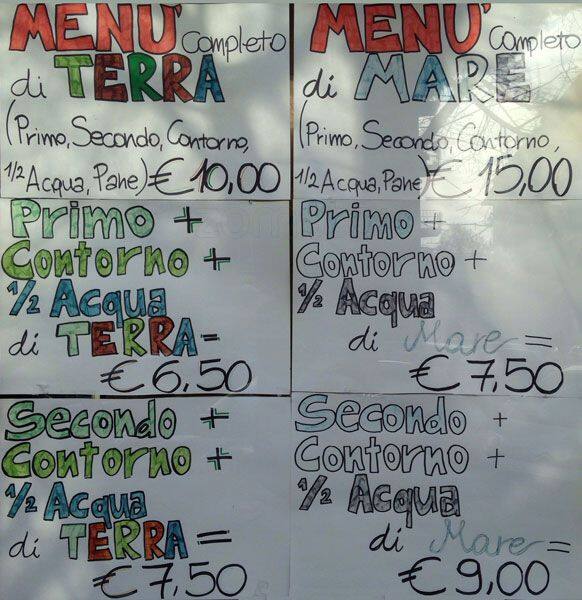 MENU' Completo
di TERRA
(Primo, Secondo, Contorno,
1/2 Acqua, Pane) € 10,00
Primo +
Contorno +
1/2 Acqua
di TERRA =
€ 6,50
Secondo +
Contorno +
1/2 Acqua
di TERRA =
€ 7,50
MENU' Completo
di MARE
(Primo, Secondo, Contorno,
1/2 Acqua, Pane) € 15,00
Primo +
Contorno +
1/2 Acqua
di Mare =
€ 7,50
Secondo +
Contorno +
1/2 Acqua
di Mare =
€ 9,00